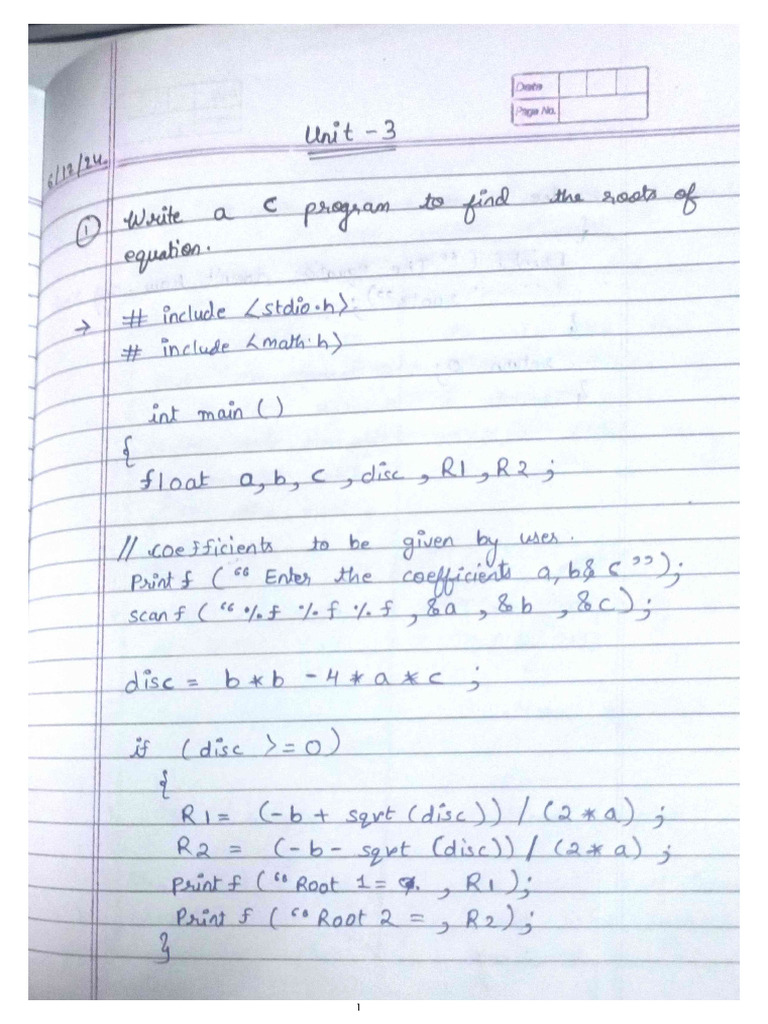 Date
Page No.
Unit - 3
6/12/24.
① Write a C program to find the roots of
equation.
→ # include <stdio.h>;
# include <math.h>
int main ()
{
float a, b, c, disc, R1, R2;
// coefficients to be given by user.
Printf (“ Enter the coefficients a, b & c ”);
scanf (“ %f %f %f , &a , &b , &c);
disc = b * b - 4 * a * c ;
if (disc >= 0)
{
R1 = (-b + sqrt (disc)) / (2 * a) ;
R2 = (-b - sqrt (disc)) / (2 * a) ;
Printf (“ Root 1 = , R1);
Printf (“ Root 2 = , R2);
}
1